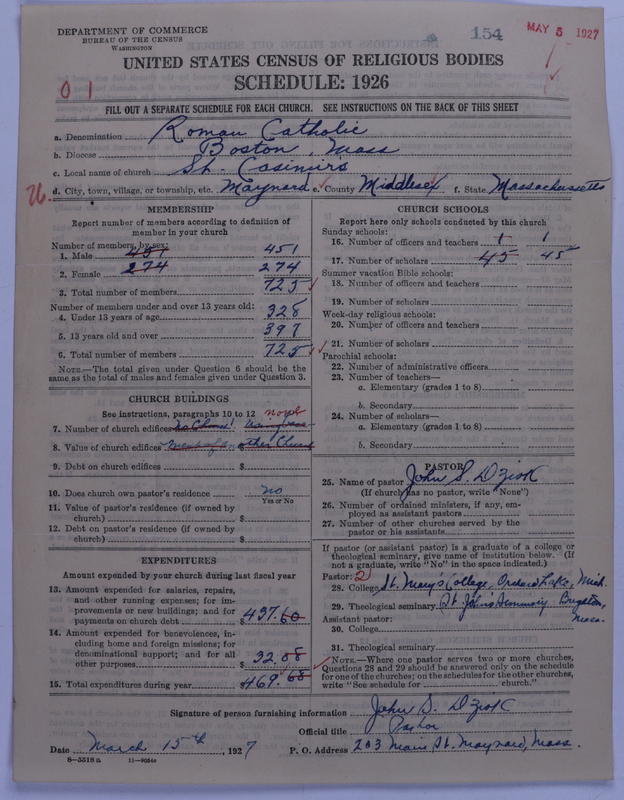 DEPARTMENT OF COMMERCE
BUREAU OF THE CENSUS
WASHINGTON
154
MAY 5 1927
UNITED STATES CENSUS OF RELIGIOUS BODIES
SCHEDULE: 1926
0 1
FILL OUT A SEPARATE SCHEDULE FOR EACH CHURCH. SEE INSTRUCTIONS ON THE BACK OF THIS SHEET
a. Denomination Roman Catholic
b. Diocese Boston, Mass
c. Local name of church St. Casimirs
d. City, town, village, or township, etc. Maynard e. County Middlesex f. State Massachusetts
MEMBERSHIP
Report number of members according to definition of
member in your church
Number of members, by sex:
1. Male 451 451
2. Female 274 274
3. Total number of members 725
Number of members under and over 13 years old:
4. Under 13 years of age 328
5. 13 years old and over 397
6. Total number of members 725
NOTE.—The total given under Question 6 should be the
same as the total of males and females given under Question 3.
CHURCH BUILDINGS
See instructions, paragraphs 10 to 12
7. Number of church edifices No Church!
8. Value of church edifices another Church
9. Debt on church edifices $
10. Does church own pastor's residence no
Yes or No
11. Value of pastor's residence (if owned by
church) $
12. Debt on pastor's residence (if owned by
church) $
EXPENDITURES
Amount expended by your church during last fiscal year
13. Amount expended for salaries, repairs,
and other running expenses; for im-
provements or new buildings; and for
payments on church debt $437.60
14. Amount expended for benevolences, in-
cluding home and foreign missions; for
denominational support; and for all
other purposes 32.08
15. Total expenditures during year $469.68
CHURCH SCHOOLS
Report here only schools conducted by this church
Sunday schools:
16. Number of officers and teachers 1 1
17. Number of scholars 45 45
Summer vacation Bible schools:
18. Number of officers and teachers
19. Number of scholars
Week-day religious schools:
20. Number of officers and teachers
21. Number of scholars
Parochial schools:
22. Number of administrative officers
23. Number of teachers—
a. Elementary (grades 1 to 8)
b. Secondary
24. Number of scholars—
a. Elementary (grades 1 to 8)
b. Secondary
PASTOR
25. Name of pastor John S. Dziok
(If church has no pastor, write "None")
26. Number of ordained ministers, if any, em-
ployed as assistant pastors
27. Number of other churches served by the
pastor or his assistants
If pastor (or assistant pastor) is a graduate of a college or
theological seminary, give name of institution below. (If
not a graduate, write "No" in the space indicated.)
Pastor: 2
28. College St. Mary's College, Orchard Lake, Mich.
29. Theological seminary St. John's Seminary Brighton,
Mass.
Assistant pastor:
30. College
31. Theological seminary
NOTE.—Where one pastor serves two or more churches,
Questions 28 and 29 should be answered only on the schedule
for one of the churches; on the schedules for the other churches,
write "See schedule for church."
Signature of person furnishing information John S. Dziok
Official title Pastor
Date March 15th, 1927 P. O. Address 203 Main St. Maynard, Mass.
8—5518 a 11—9054